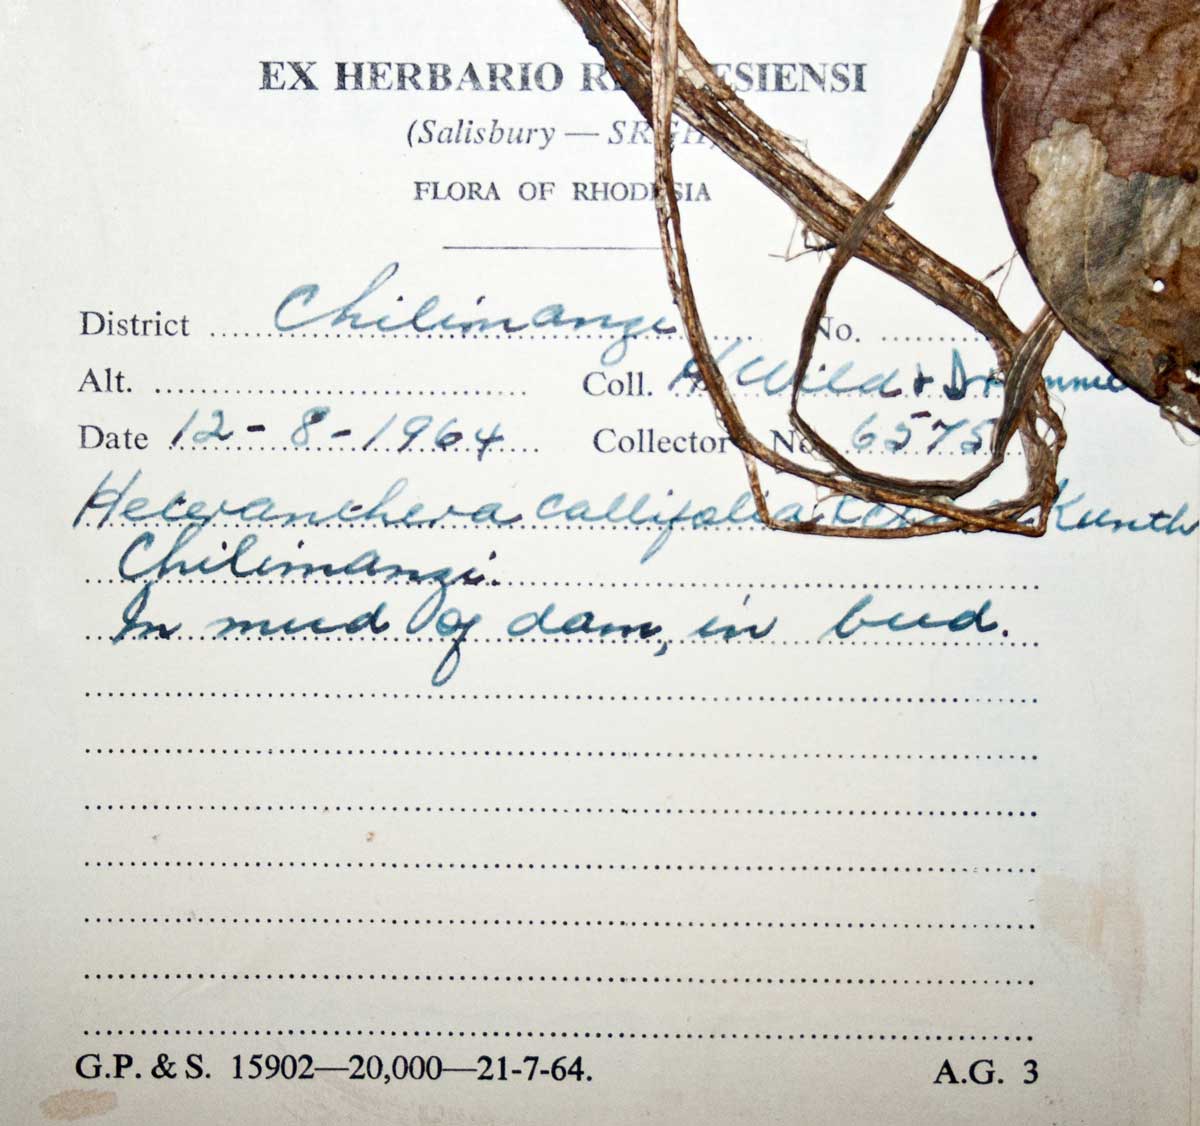 EX HERBARIO RHODESIENSI
(Salisbury — SRGH)
FLORA OF RHODESIA
District Chilimanzi No.
Alt. Coll. H Wild &
Date 12-8-1964 Collector No. 6575
Heteranthera callifolia Kunth
Chilimanzi.
In mud of dam, in bud.
G.P. & S. 15902—20,000—21-7-64. A.G. 3